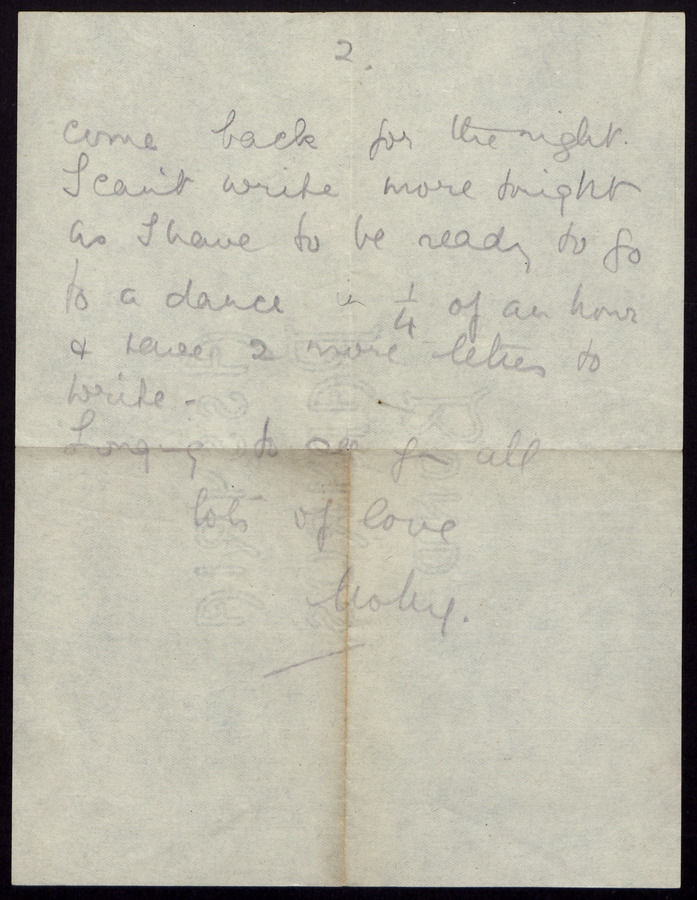 2.
come back for the night.
I can't write more tonight
as I have to be ready to go
to a dance in 1/4 of an hour
& have 2 more letters to
write -
Longing to see you all
lots of love